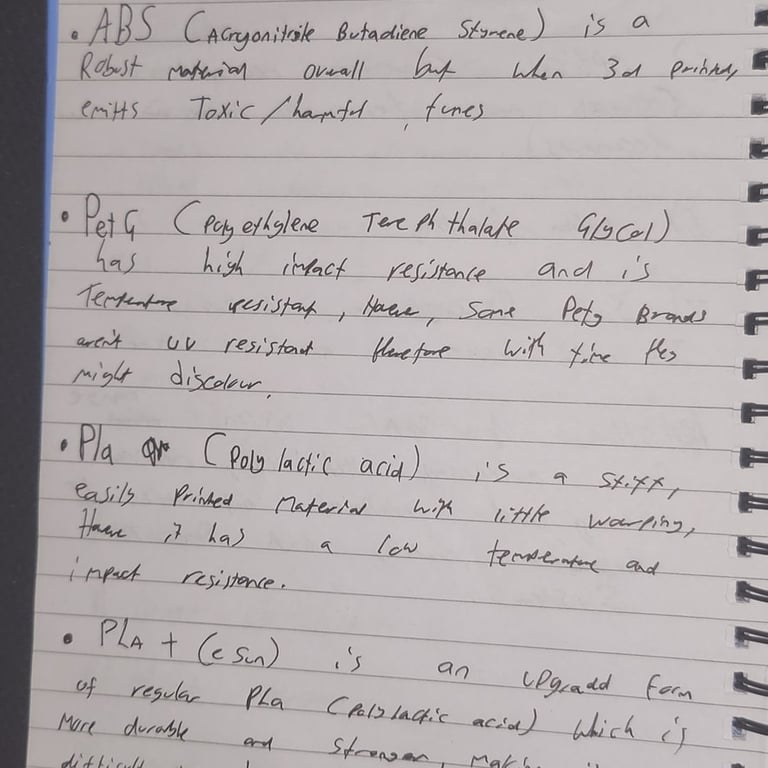 • ABS (Acryonitrile Butadiene Styrene) is a
Robust material overall but when 3d printed,
emitts Toxic/harmful fumes
• PetG (polyethylene Terephthalate Glycol)
has high impact resistance and is
Temperature resistant, However, Some Petg Brands
aren't uv resistant therefore with time they
might discolour.
• Pla (Polylactic acid) is a stiff,
easily Printed Material with little warping,
However it has a low temperature and
impact resistance.
• PLA + (eSun) is an upgradd form
of regular PLa (Polylactic acid) which is
More durable and stronger,
difficult